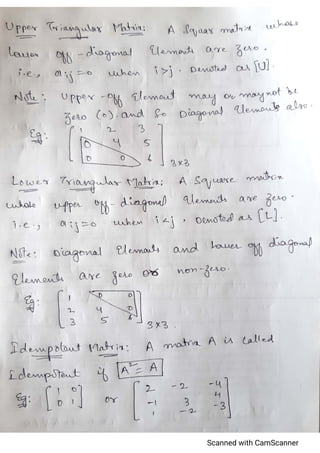 Upper Triangular Matrix: A Square matrix whose
Lower off-diagonal Elements are zero.
i.e., aij=0 when i>j. Denoted as [U].
Note: Upper-off Element may or may not be
zero (0). and so Diagonal Elements also.
Eg: [ 1 2 3
0 4 5
0 0 6 ] 3x3
Lower Triangular Matrix: A Square matrix
whose upper off-diagonal elements are zero.
i.e., aij=0 when i<j, Denoted as [L].
Note: Diagonal Elements and Lower off diagonal
Elements are zero or non-zero.
Eg: [ 1 0 0
2 4 0
3 5 6 ] 3x3.
Idempotent Matrix: A matrix A is called
Idempotent if A² = A
Eg: [ 1 0
0 1 ] or [ 2 -2 -4
-1 3 4
1 -2 -3 ]
Scanned with CamScanner